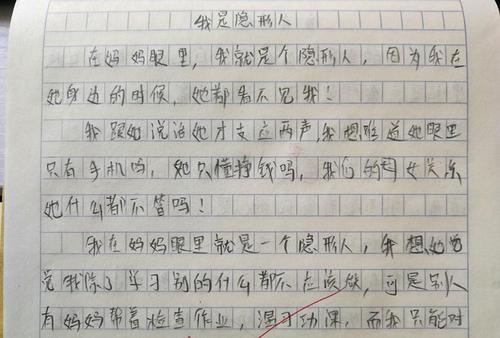 我是隐形人
在妈妈眼里，我就是个隐形人，因为我在
她身边的时候，她都看不见我！
我跟她说话她才支应两声，我想难道她眼里
只有手机吗，她只懂挣钱吗，我们的母女关系
她什么都不管吗！
我在妈妈眼里就是一个隐形人，我想她觉
觉我除了学习别的什么都不应该做，可是别人
有妈妈帮着检查作业，温习功课，而我只能对